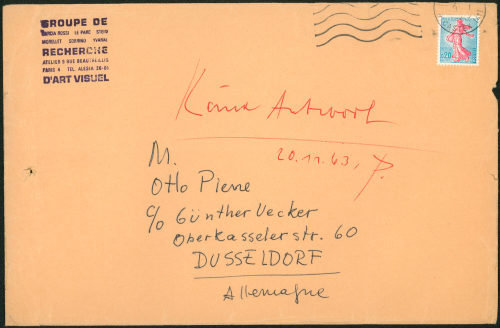 GROUPE DE
GARCIA-ROSSI LE PARC STEIN
MORELLET SOBRINO YVARAL
RECHERCHE
ATELIER 9 RUE BEAUTREILLIS
PARIS 4 TEL.
D'ART VISUEL
0,20
Keine Antwort
20.11.63, P.
M.
Otto Piene
c/o Günther Uecker
Oberkasseler str. 60
DUSSELDORF
Allemagne